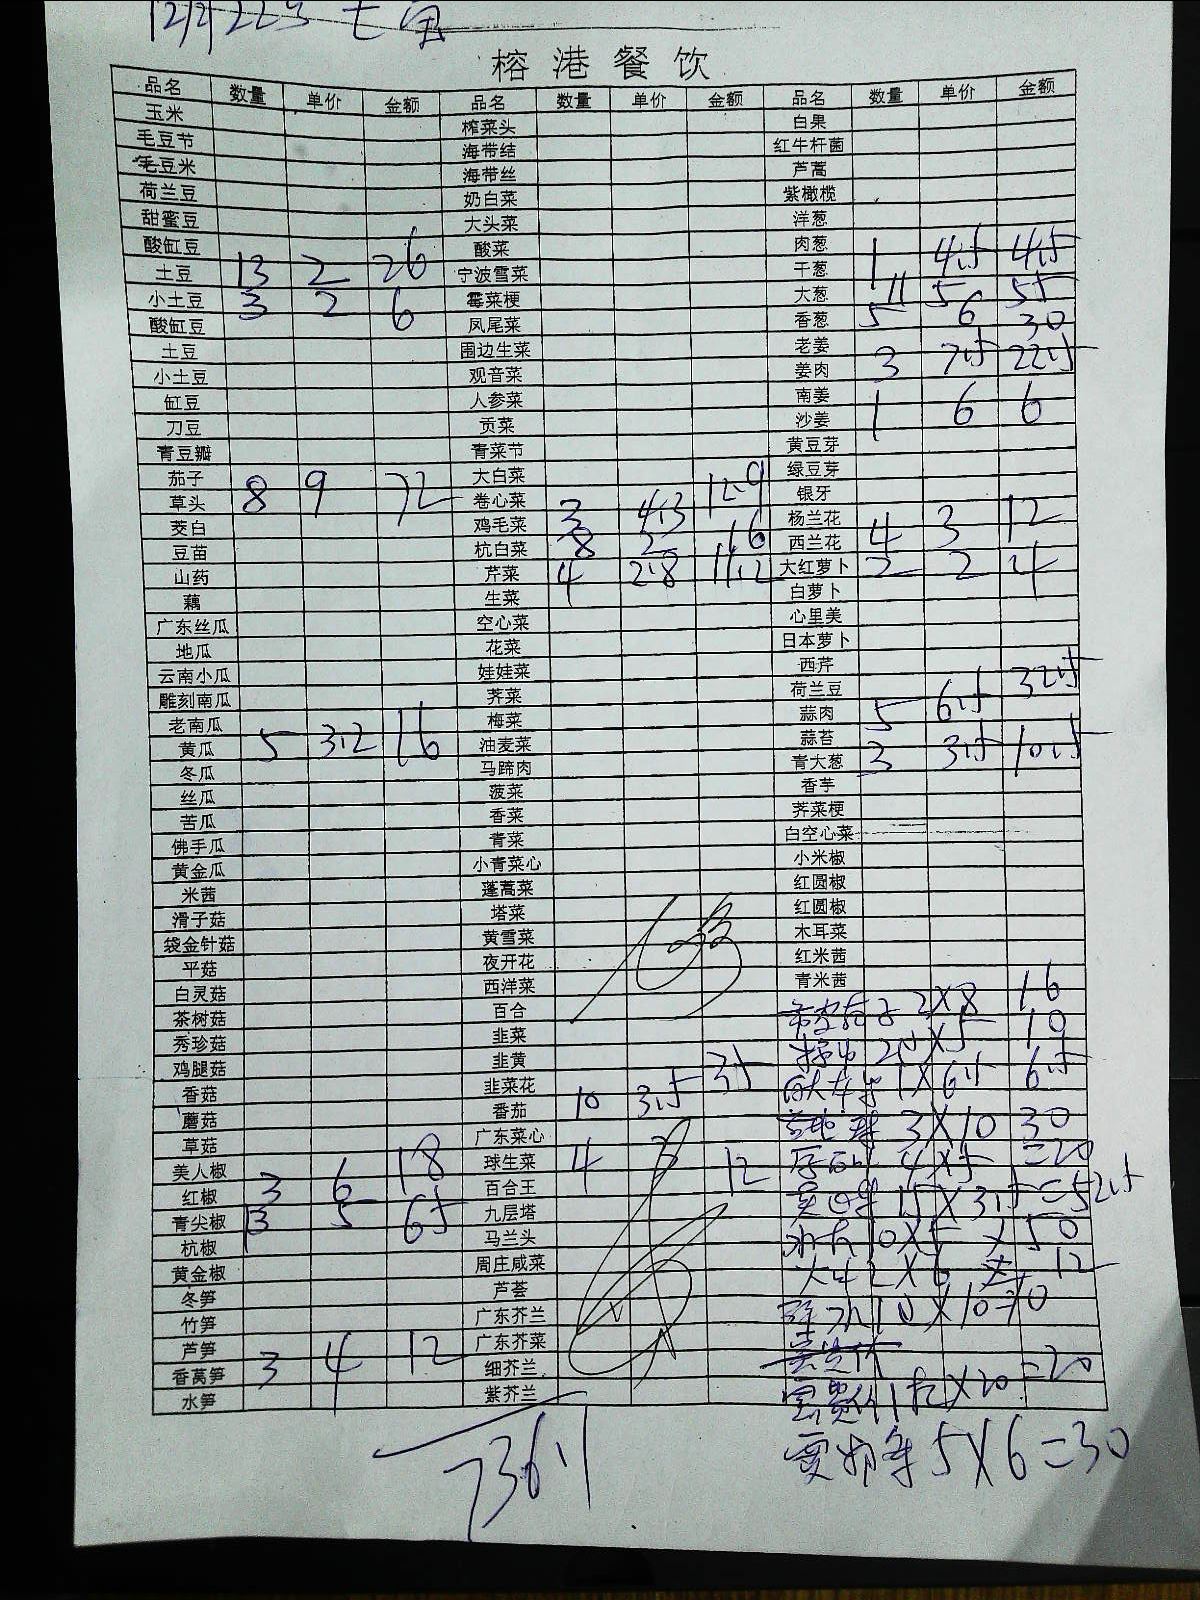 榕港餐饮
品名 数量 单价 金额 品名 数量 单价 金额 品名 数量 单价 金额
玉米 榨菜头 白果
毛豆节 海带结 红牛杆菌
毛豆米 海带丝 芦蒿
荷兰豆 奶白菜 紫橄榄
甜蜜豆 大头菜 洋葱
酸缸豆 酸菜 肉葱
土豆 13 2 26 宁波雪菜 干葱 1 4.5 4.5
小土豆 3 2 6 霉菜梗 大葱 11 5 55
酸缸豆 凤尾菜 香葱 5 6 30
土豆 围边生菜 老姜
小土豆 观音菜 姜肉 3 7.5 22.5
缸豆 人参菜 南姜
刀豆 贡菜 沙姜 1 6 6
青豆瓣 青菜节 黄豆芽
茄子 大白菜 绿豆芽
草头 8 9 72 卷心菜 银牙
茭白 鸡毛菜 3 4.3 12.9 杨兰花
豆苗 杭白菜 8 2 16 西兰花 4 3 12
山药 芹菜 4 2.8 11.2 大红萝卜 2 2 4
藕 生菜 白萝卜
广东丝瓜 空心菜 心里美
地瓜 花菜 日本萝卜
云南小瓜 娃娃菜 西芹
雕刻南瓜 荠菜 荷兰豆
老南瓜 梅菜 蒜肉 5 6.5 32.5
黄瓜 5 3.2 16 油麦菜 蒜苔
冬瓜 马蹄肉 青大葱 3 3.5 10.5
丝瓜 菠菜 香芋
苦瓜 香菜 荠菜梗
佛手瓜 青菜 白空心菜
黄金瓜 小青菜心 小米椒
米茜 蓬蒿菜 红圆椒
滑子菇 塔菜 红圆椒
袋金针菇 黄雪菜 木耳菜
平菇 夜开花 红米茜
白灵菇 西洋菜 青米茜
茶树菇 百合 2×8 16
秀珍菇 韭菜 2×5 10
鸡腿菇 韭黄 1×6.5 6.5
香菇 韭菜花 3×10 30
蘑菇 番茄 10 3.5 35
草菇 广东菜心 4×5 =20
美人椒 球生菜 4 3 12
红椒 3 6 18 百合王 15×3.5=52.5
青尖椒 13 5 65 九层塔 10×5 50
杭椒 马兰头
黄金椒 周庄咸菜 2×6 12
冬笋 芦荟
竹笋 广东芥兰
芦笋 广东芥菜
香莴笋 3 4 12 细芥兰
水笋 紫芥兰 ×20=20
5×6=30